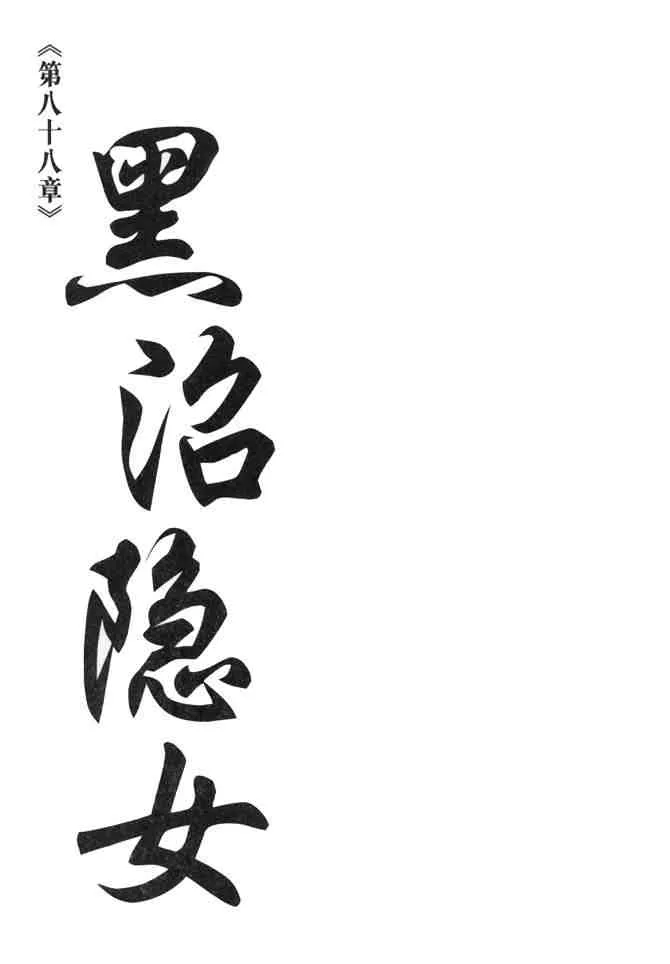 《第八十八章》
黑沼隐女